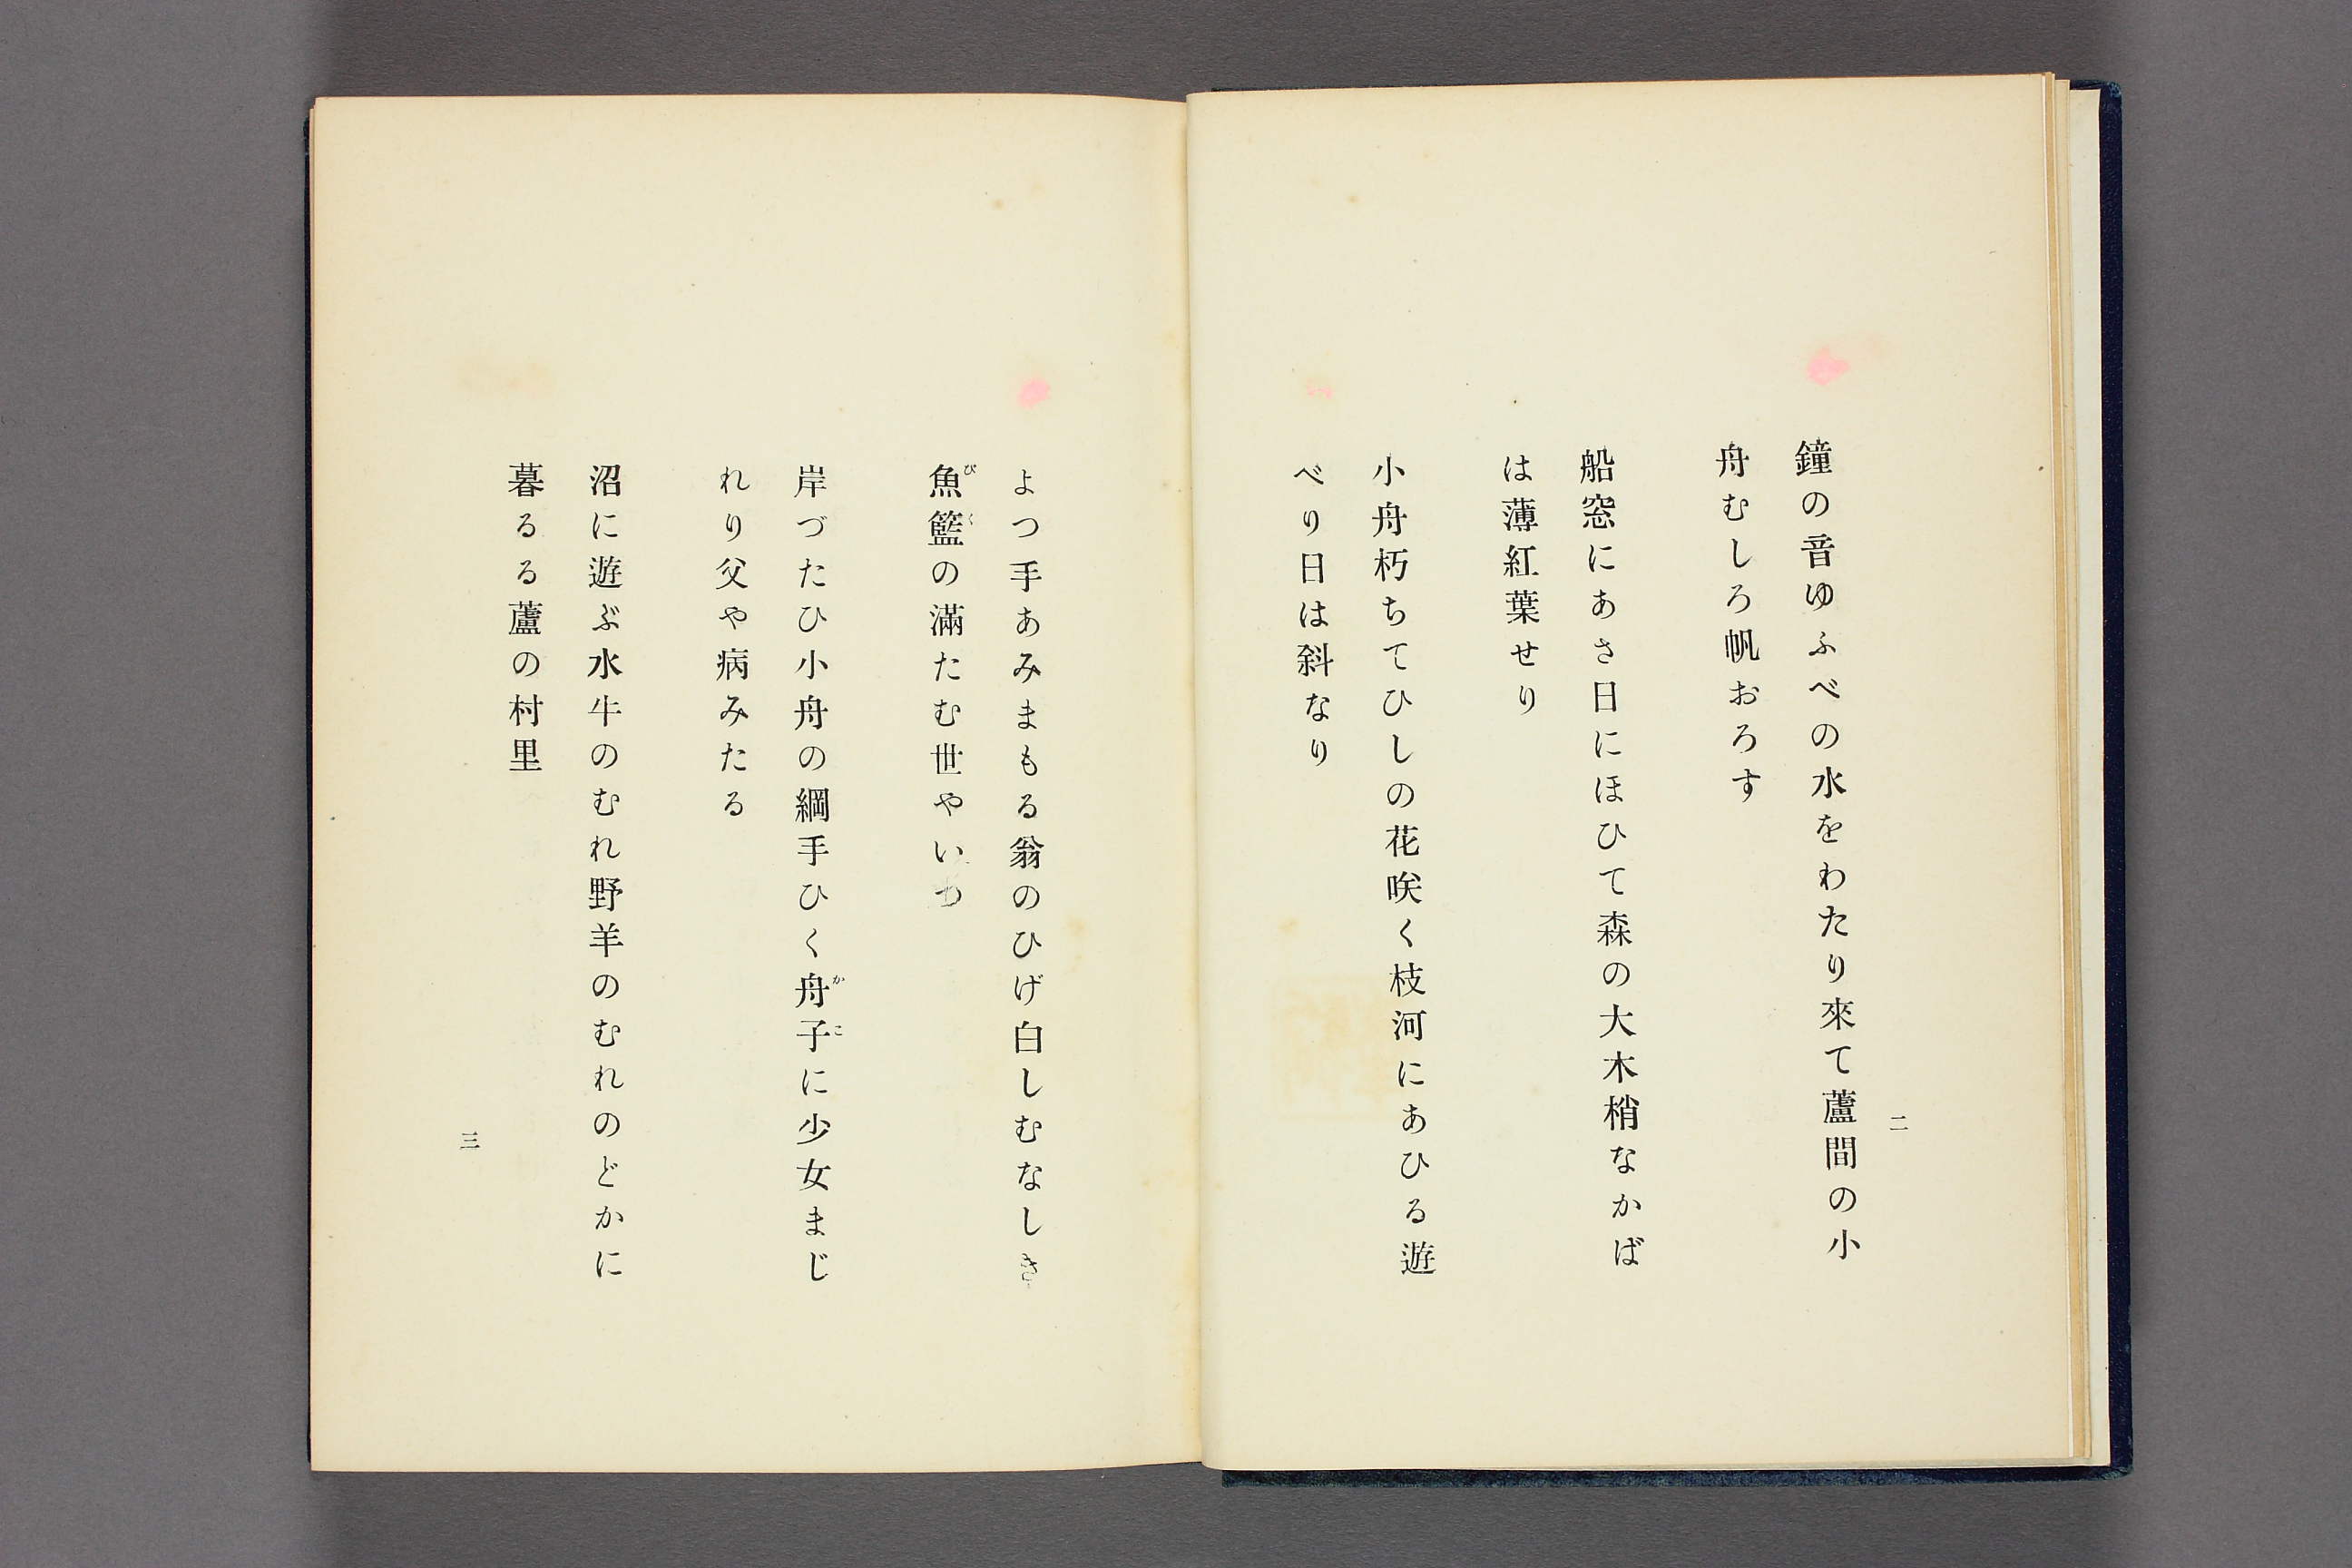 二
鐘の音ゆふべの水をわたり來て蘆間の小
舟むしろ帆おろす
船窓にあさ日にほひて森の大木梢なかば
は薄紅葉せり
小舟朽ちてひしの花咲く枝河にあひる遊
べり日は斜なり
よつ手あみまもる翁のひげ白しむなしき
魚籃の滿たむ世やいつ
岸づたひ小舟の綱手ひく舟子に少女まじ
れり父や病みたる
沼に遊ぶ水牛のむれ野羊のむれのどかに
暮るる蘆の村里
三